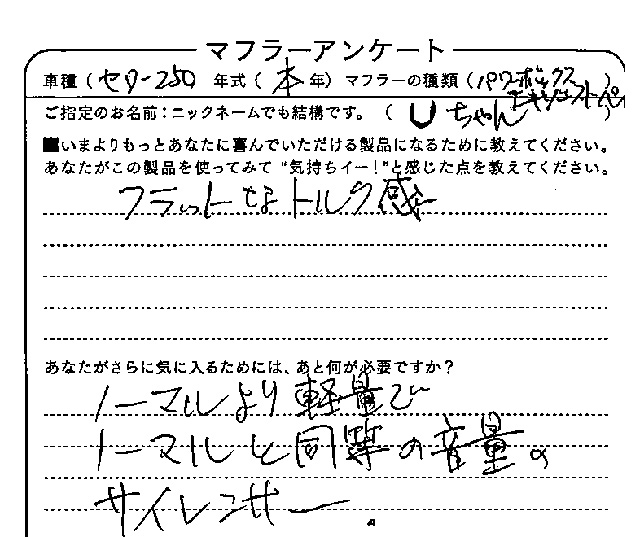 マフラーアンケート
車種（セロー250 年式（本年）マフラーの種類（パワーボックス エキゾーストパイ
ご指定のお名前：ニックネームでも結構です。（Uちゃん）
■いまよりもっとあなたに喜んでいただける製品になるために教えてください。
あなたがこの製品を使ってみて“気持ちイー！”と感じた点を教えてください。
フラットなトルク感
あなたがさらに気に入るためには、あと何が必要ですか？
ノーマルより軽量で
ノーマルと同等の音量の
サイレンサー。